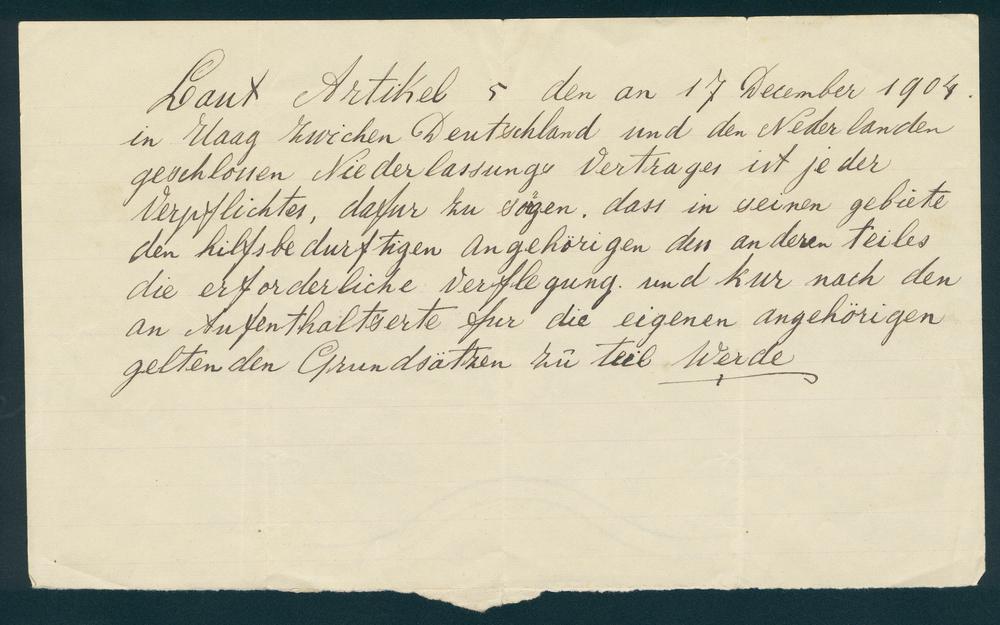 Laut Artikel 5 den an 17 December 1904.
in Haag zwichen Deutschland und den Nederlanden
geschlossen Niederlassungs Vertrages ist jeder
Verpflichtes, dafur zu sögen, dass in seinen gebiete
den hilfsbedurftigen angehörigen des anderen teiles
die erforderliche Verflegung. und kur nach den
an Aufenthaltserte fur die eigenen angehörigen
geltenden Grundsätzen zu teil Werde